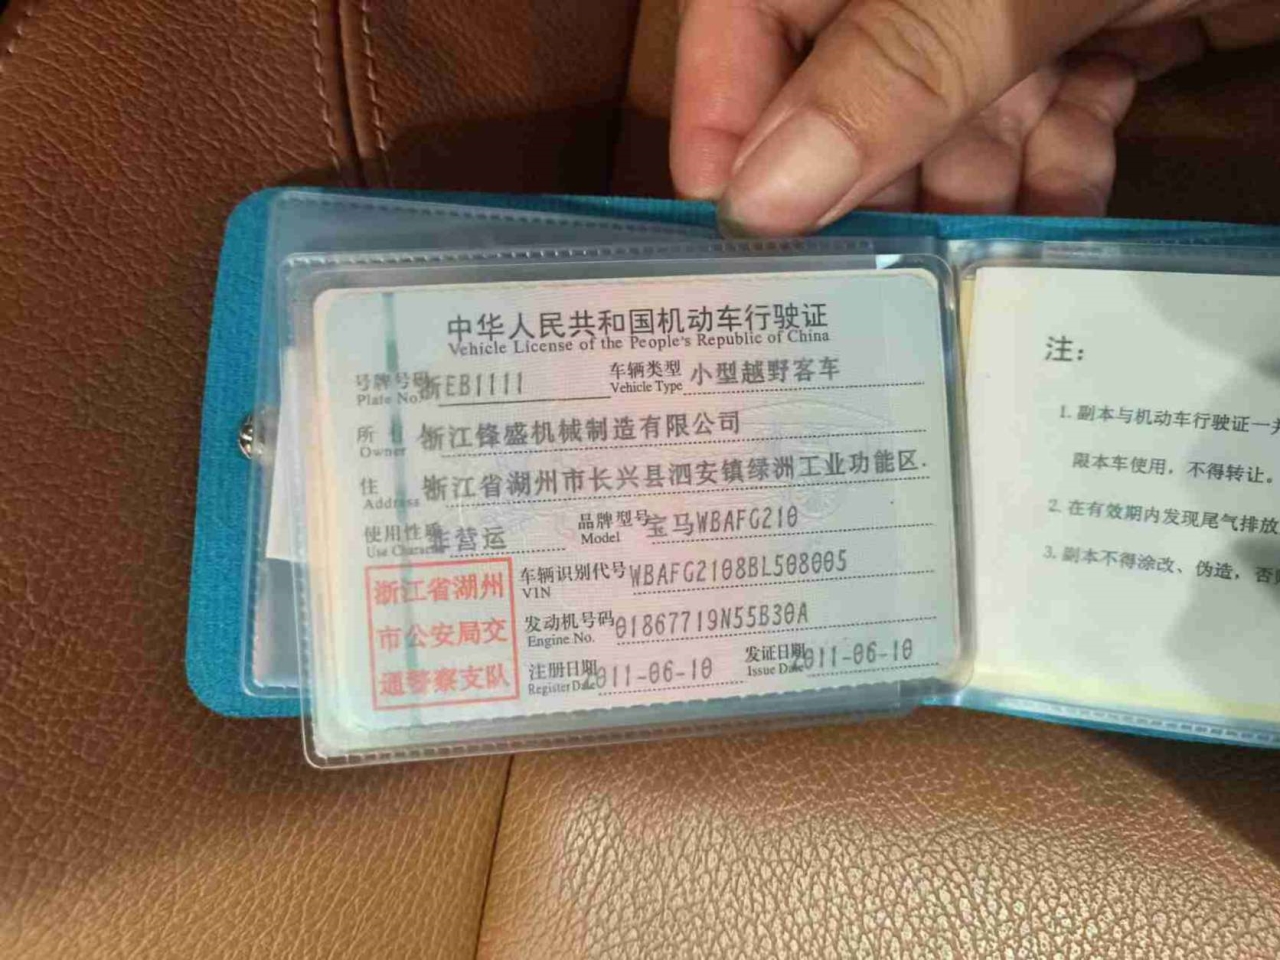 中华人民共和国机动车行驶证
Vehicle License of the People's Republic of China
号牌号码 浙EB1111 车辆类型 小型越野客车
Plate No. Vehicle Type
所 浙江锋盛机械制造有限公司
Owner
住 浙江省湖州市长兴县泗安镇绿洲工业功能区.
Address
使用性质 非营运 品牌型号 宝马WBAFG210
Use Character Model
浙江省湖州
市公安局交
通警察支队
车辆识别代号 WBAFG2108BL508005
VIN
发动机号码 01867719N55B30A
Engine No.
注册日期 2011-06-10 发证日期 2011-06-10
Register Date Issue Date
注：
1. 副本与机动车行驶证一
限本车使用，不得转让。
2. 在有效期内发现尾气排放
3. 副本不得涂改、伪造，否